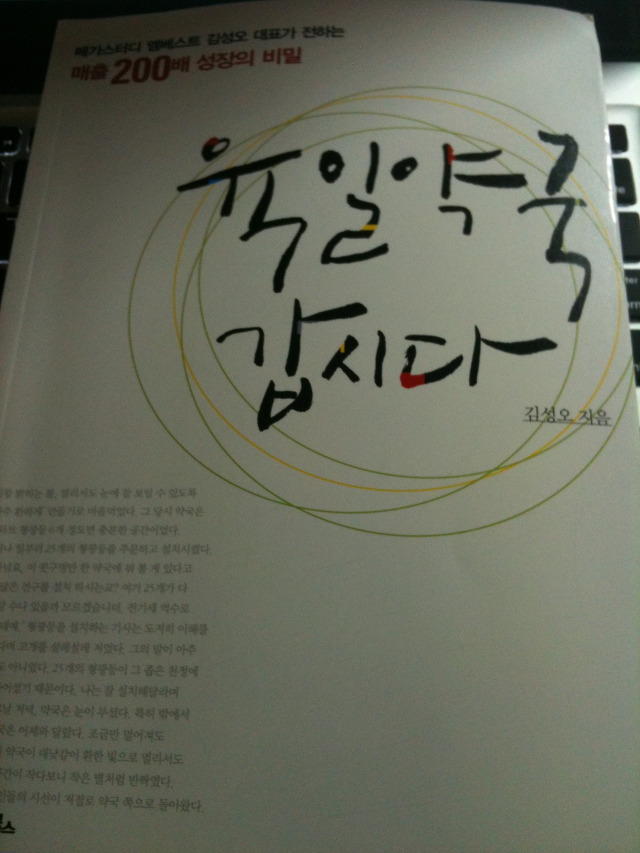 메가스터디 엠베스트 김성오 대표가 전하는
매출 200배 성장의 비밀
육일약국
갑시다
김성오 지음
밝히는 불, 멀리서도 눈에 잘 보일 수 있도록
환하게' 만들기로 마음먹었다. 그 당시 약국은
형광등 6개 정도면 충분한 공간이었다.
일부러 25개의 형광등을 주문하고 설치시켰다.
이 쪼구만한 약국에 뭐 볼 게 있다고
전구를 설치 하시는교? 여기 25개가 다
수나 있을까 모르겠습니더. 전기세 억수로
형광등을 설치하는 기사는 도저히 이해를
고개를 설레설레 저었다. 그의 말이 아주
아니었다. 25개의 형광등이 그 좁은 천정에
때문이다. 나는 잘 설치해달라며
저녁, 약국은 눈이 부셨다. 특히 밤에서
어제와 달랐다. 조금만 떨어져도
약국이 대낮같이 환한 빛으로 멀리서도
작다보니 작은 별처럼 반짝였다.
시선이 저절로 약국 쪽으로 돌아왔다.